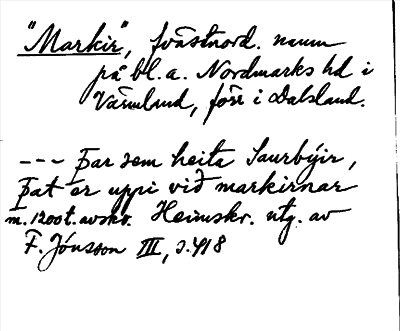 "Markir", fvästnord. namn
på bl.a. Nordmarks hd i
Värmland, förr i Dalsland.
--- Þar sem heita Saurbýir,
Þat er uppi við markirnar
m. 1200t. avskr. Heimskr. utg. av
F. Jónsson III, s. 418